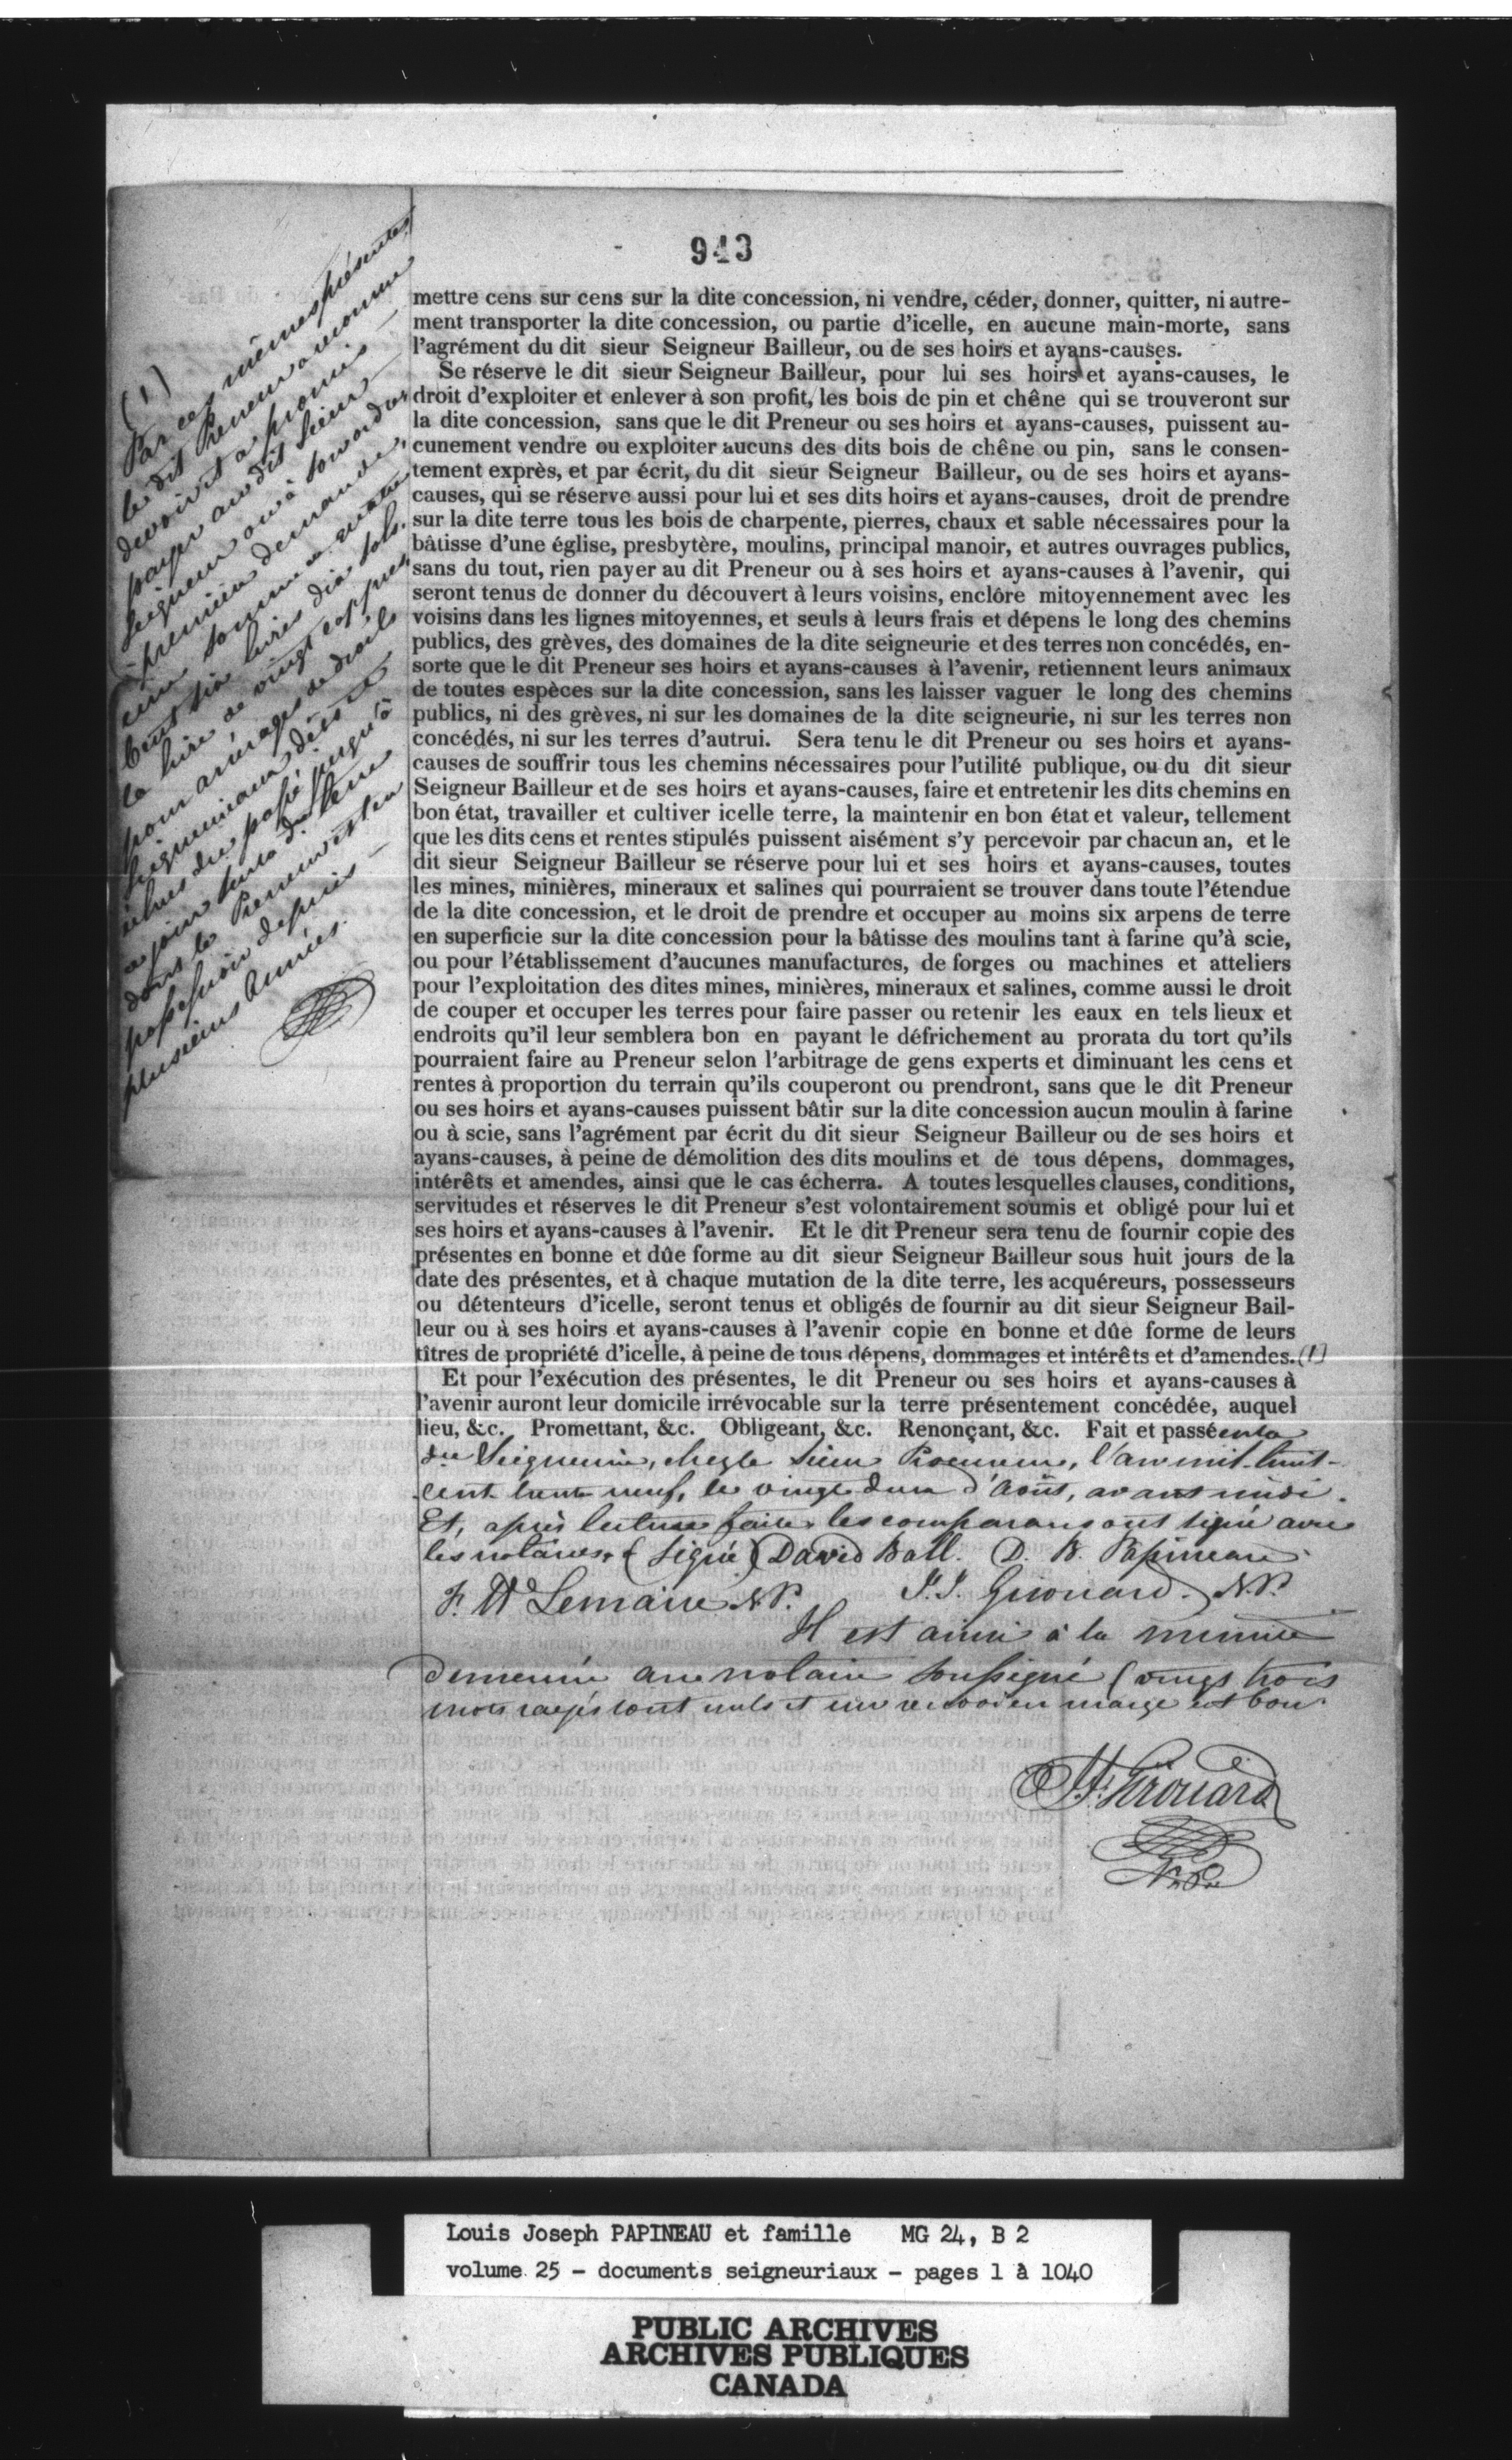 943
mettre cens sur cens sur la dite concession, ni vendre, céder, donner, quitter, ni autre-
ment transporter la dite concession, ou partie d'icelle, en aucune main-morte, sans
l'agrément du dit sieur Seigneur Bailleur, ou de ses hoirs et ayans-causes.
Se réserve le dit sieur Seigneur Bailleur, pour lui ses hoirs et ayans-causes, le
droit d'exploiter et enlever à son profit, les bois de pin et chêne qui se trouveront sur
la dite concession, sans que le dit Preneur ou ses hoirs et ayans-causes, puissent au-
cunement vendre ou exploiter aucuns des dits bois de chêne ou pin, sans le consen-
tement exprès, et par écrit, du dit sieur Seigneur Bailleur, ou de ses hoirs et ayans-
causes, qui se réserve aussi pour lui et ses dits hoirs et ayans-causes, droit de prendre
sur la dite terre tous les bois de charpente, pierres, chaux et sable nécessaires pour la
bâtisse d'une église, presbytère, moulins, principal manoir, et autres ouvrages publics,
sans du tout, rien payer au dit Preneur ou à ses hoirs et ayans-causes à l'avenir, qui
seront tenus de donner du découvert à leurs voisins, enclôre mitoyennement avec les
voisins dans les lignes mitoyennes, et seuls à leurs frais et dépens le long des chemins
publics, des grèves, des domaines de la dite seigneurie et des terres non concédés, en-
sorte que le dit Preneur ses hoirs et ayans-causes à l'avenir, retiennent leurs animaux
de toutes espèces sur la dite concession, sans les laisser vaguer le long des chemins
publics, ni des grèves, ni sur les domaines de la dite seigneurie, ni sur les terres non
concédés, ni sur les terres d'autrui. Sera tenu le dit Preneur ou ses hoirs et ayans-
causes de souffrir tous les chemins nécessaires pour l'utilité publique, ou du dit sieur
Seigneur Bailleur et de ses hoirs et ayans-causes, faire et entretenir les dits chemins en
bon état, travailler et cultiver icelle terre, la maintenir en bon état et valeur, tellement
que les dits cens et rentes stipulés puissent aisément s'y percevoir par chacun an, et le
dit sieur Seigneur Bailleur se réserve pour lui et ses hoirs et ayans-causes, toutes
les mines, minières, mineraux et salines qui pourraient se trouver dans toute l'étendue
de la dite concession, et le droit de prendre et occuper au moins six arpens de terre
en superficie sur la dite concession pour la bâtisse des moulins tant à farine qu'à scie,
ou pour l'établissement d'aucunes manufactures, de forges ou machines et atteliers
pour l'exploitation des dites mines, minières, mineraux et salines, comme aussi le droit
de couper et occuper les terres pour faire passer ou retenir les eaux en tels lieux et
endroits qu'il leur semblera bon en payant le défrichement au prorata du tort qu'ils
pourraient faire au Preneur selon l'arbitrage de gens experts et diminuant les cens et
rentes à proportion du terrain qu'ils couperont ou prendront, sans que le dit Preneur
ou ses hoirs et ayans-causes puissent bâtir sur la dite concession aucun moulin à farine
ou à scie, sans l'agrément par écrit du dit sieur Seigneur Bailleur ou de ses hoirs et
ayans-causes, à peine de démolition des dits moulins et de tous dépens, dommages,
intérêts et amendes, ainsi que le cas écherra. A toutes lesquelles clauses, conditions,
servitudes et réserves le dit Preneur s'est volontairement soumis et obligé pour lui et
ses hoirs et ayans-causes à l'avenir. Et le dit Preneur sera tenu de fournir copie des
présentes en bonne et dûe forme au dit sieur Seigneur Bailleur sous huit jours de la
date des présentes, et à chaque mutation de la dite terre, les acquéreurs, possesseurs
ou détenteurs d'icelle, seront tenus et obligés de fournir au dit sieur Seigneur Bail-
leur ou à ses hoirs et ayans-causes à l'avenir copie en bonne et dûe forme de leurs
tîtres de propriété d'icelle, à peine de tous dépens, dommages et intérêts et d'amendes. (1)
Et pour l'exécution des présentes, le dit Preneur ou ses hoirs et ayans-causes à
l'avenir auront leur domicile irrévocable sur la terre présentement concédée, auquel
lieu, &c. Promettant, &c. Obligeant, &c. Renonçant, &c. Fait et passé en la
dte Seigneurie, chez le Sieur Procureur, l'an mil-huit-
cent-trente neuf, le vingt deux d'Août, avant midi.
Et, après lecture faite, les comparans ont signé avec
les notaires. (Signé) David Ball. D. B. Papineau
F. W Lemaire N.P. J. J. Girouard. N.P.
Il est ainsi à la minute
demeurée au notaire soussigné (vingt trois
mots rayés sont nuls et un renvoi en marge est bon.
J. J. Girouard
N.P.
(1)
Par ces mêmes présentes
le dit Preneur a reconnu
devoir et a promis
payer au dit Sieur
Seigneur ou à son ordre
à première demande,
une somme de quatre
cent six livres dix sols,
la livre de vingt coppres
pour arrérages de droits
seigneuriaux dûs et
échus du passé jusqu'à
ce jour sur la dte terre
dont le Preneur est en
possession depuis
plusieurs années.
Louis Joseph PAPINEAU et famille MG 24, B 2
volume 25 - documents seigneuriaux - pages 1 à 1040
PUBLIC ARCHIVES
ARCHIVES PUBLIQUES
CANADA